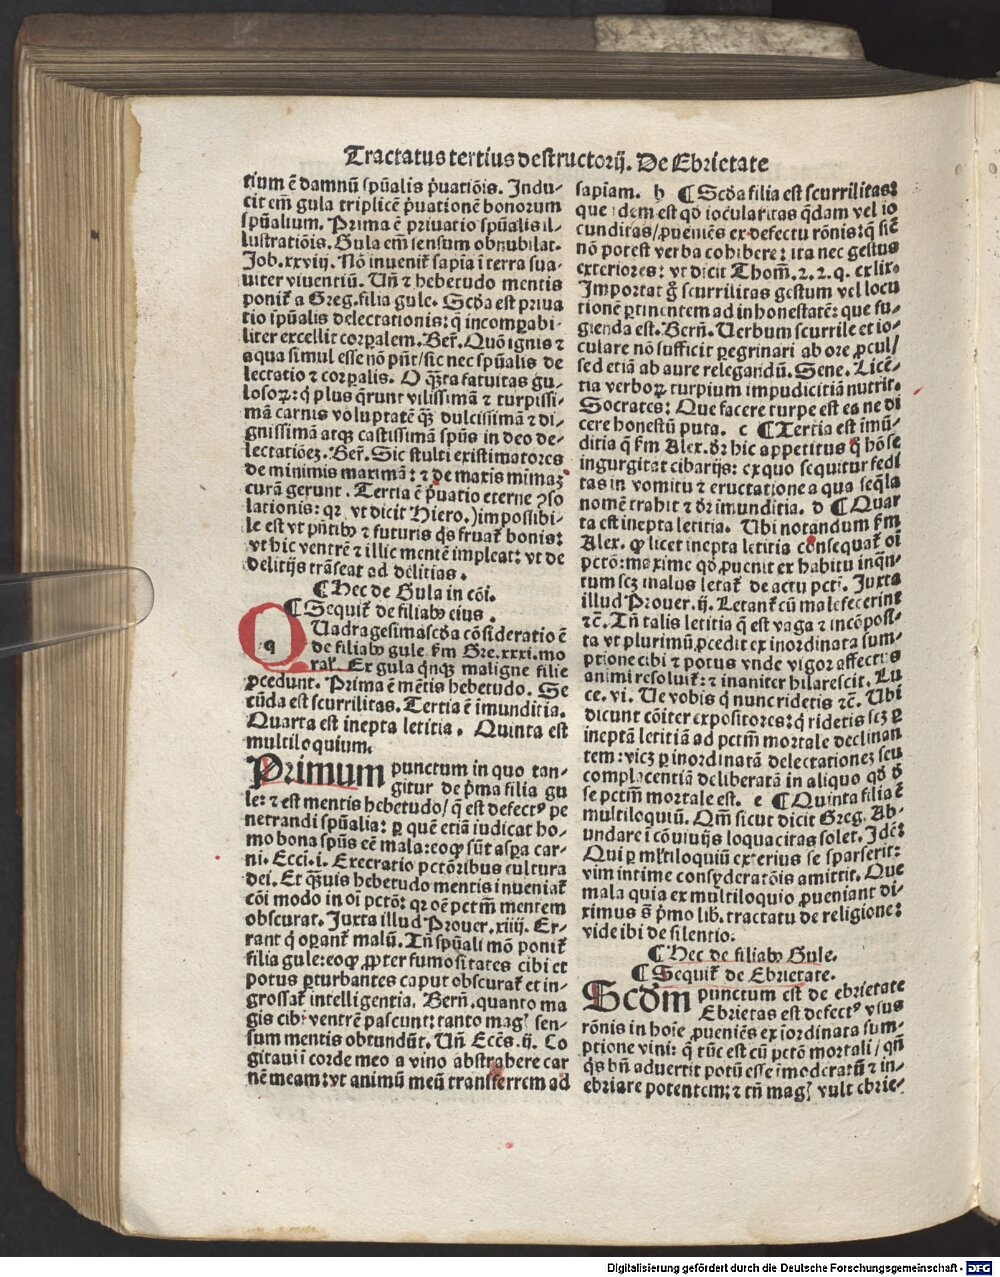 Tractatus tertius destructorij. De Ebrietate
tium ē damnū spūalis p̄uatiōis. Indu-
cit em̄ gula triplicē p̄uationē bonorum
spūalium. Prima ē priuatio spūalis il-
lustratiōis. Gula em̄ sensum obnubilat.
Job. xxviij. Nō inuenit᷑ sapīa ī terra sua-
uiter viuentiū. Un̄ ⁊ hebetudo mentis
ponit᷑ a Greg. filia gule. Scd̄a est priua
tio spūalis delectationis: q̄ incomꝑabi-
liter excellit corꝑalem. Ber̄. Quō ignis ⁊
aqua simul esse nō pn̄t/ sic nec spūalis de
lectatio ⁊ corꝑalis. O q̄ꝫta fatuitas gu-
losoꝝ: q̇ plus q̄runt vilissimā ⁊ turpissi-
mā carnis voluptatē q̄ꝫ dulcissimā ⁊ di-
gnissimā atqꝫ castissimā spūs in deo de-
lectatiōeꝫ. Ber̄. Sic stulti existimatores
de minimis maximā: ⁊ de maxis mīmaꝫ
curā gerunt. Tertia ē p̄uatio eterne ꝯso
lationis: qꝛ vt dicit Hiero.) impossibi-
le est vt pn̄tibꝰ ⁊ futuris q̇s fruat᷑ bonis:
vt hic ventrē ⁊ illic mentē impleat: vt de
delitijs trāseat ad delitias.
¶ Hec de Gula in cōi.
¶ Sequit᷑ de filiabꝰ eius.
QUadragesimascd̄a cōsideratio ē
de filiabꝰ gule ẜm Gre. xxxi. mo
ral. Ex gula q̇nqꝫ maligne filie
ꝓcedunt. Prima ē mētis hebetudo. Se
cūda est scurrilitas. Tertia ē imunditia.
Quarta est inepta letitia. Quinta est
multiloquium.
Primum punctum in quo tan-
gitur de p̄ma filia gu
le: ⁊ est mentis hebetudo/ q̄ est defectꝰ pe
netrandi spūalia: ꝑ quē etiā iudicat ho-
mo bona spūs eē mala: eoqꝫ sūt aspa car-
ni. Ecci. i. Execratio pctōribus cultura
dei. Et q̄ꝫuis hebetudo mentis inueniat᷑
cōi modo in oī pctō: qꝛ oē pctm̄ mentem
obscurat. Juxta illud Prouer. xiiij. Er-
rant q̇ oꝑant᷑ malū. Tn̄ spūali mō ponit᷑
filia gule: eoqꝫ ꝓpter fumositates cibi et
potus ꝑturbantes caput obscurat᷑ et in-
grossat᷑ intelligentia. Bern̄. quanto ma
gis cibi ventrē pascunt: tanto mag̃ sen-
sum mentis obtundūt. Un̄ Ecc̄s. ij. Co
gitaui ī corde meo a vino abstrahere car
nē meam: vt animū meū transferrem ad
sapiam. b ¶ Scd̄a filia est scurrilitas:
que idem est qd̄ iocularitas q̄dam vel io
cunditas/ ꝓueniēs ex defectu rōnis: q̄ sic̄
nō potest verba cohibere: ita nec gestus
exteriores: vt dicit Thom̄. 2. 2. q. cxlix.
Importat g̊ scurrilitas gestum vel locu
tionē ꝑtinentem ad inhonestatē: que fu-
gienda est. Bern̄. Uerbum scurrile et io-
culare nō sufficit ꝑegrinari ab ore ꝓcul/
sed etiā ab aure relegandū. Sene. Licē-
tia verboꝝ turpium impudicitiā nutrit.
Socrates: Que facere turpe est ea ne di
cere honestū puta. c ¶ Tertia est imū-
ditia q̄ ẜm Alex. dr̄ hic appetitus q̊ hō se
ingurgitat cibarijs: ex quo sequitur fedi
tas in vomitu ⁊ eructatione a qua seq̄la
nomē trahit ⁊ dr̄ imunditia. d ¶ Quar
ta est inepta letitia. Ubi notandum ẜm
Alex. ꝙ licet inepta letitia cōsequat᷑ oē
pctō: maxime qd̄ ꝓuenit ex habitu inq̄n-
tum scꝫ malus letat᷑ de actu pcti. Juxta
illud Prouer. ij. Letant᷑ cū malefecerint
⁊c̄. Tn̄ talis letitia q̄ est vaga ⁊ incōposi-
ta vt plurimū ꝓcedit ex inordinata sum-
ptione cibi ⁊ potus vnde vigor affectus
animi resoluit᷑: ⁊ inaniter hilarescit. Lu
ce. vi. Ue vobis q̇ nunc ridetis ⁊c̄. Ubi
dicunt cōiter expositores: q̇ ridetis scꝫ ꝑ
ineptā letitiā ad pctm̄ mortale declinan
tem: vicꝫ ꝑ inordinatā delectationeꝫ seu
complacentiā deliberatā in aliquo qd̄ d̄
se pctm̄ mortale est. e ¶ Quinta filia ē
multiloquiū. Qm̄ sicut dicit Greg. Ab-
undare ī cōuiuijs loquacitas solet. Idē:
Qui ꝑ ml̄tiloquiū exterius se sparserit:
vim intime consyderatōis amittit. Que
mala quia ex multiloquio ꝓueniant di-
ximus s̄ p̄mo lib. tractatu de religione:
vide ibi de silentio.
¶ Hec de filiabꝰ Gule.
¶ Sequit᷑ de Ebrietate.
Scd̄m punctum est de ebrietate
Ebrietas est defectꝰ vsus
rōnis in hoīe ꝓueniēs ex īordinata sum-
ptione vini: q̄ tūc est cū pctō mortali/ qn̄
q̇s bn̄ aduertit potū esse īmoderatū ⁊ in-
ebriare potentem: ⁊ tn̄ mag̃ vult ebrie-
Digitalisierung gefördert durch die Deutsche Forschungsgemeinschaft - DFG